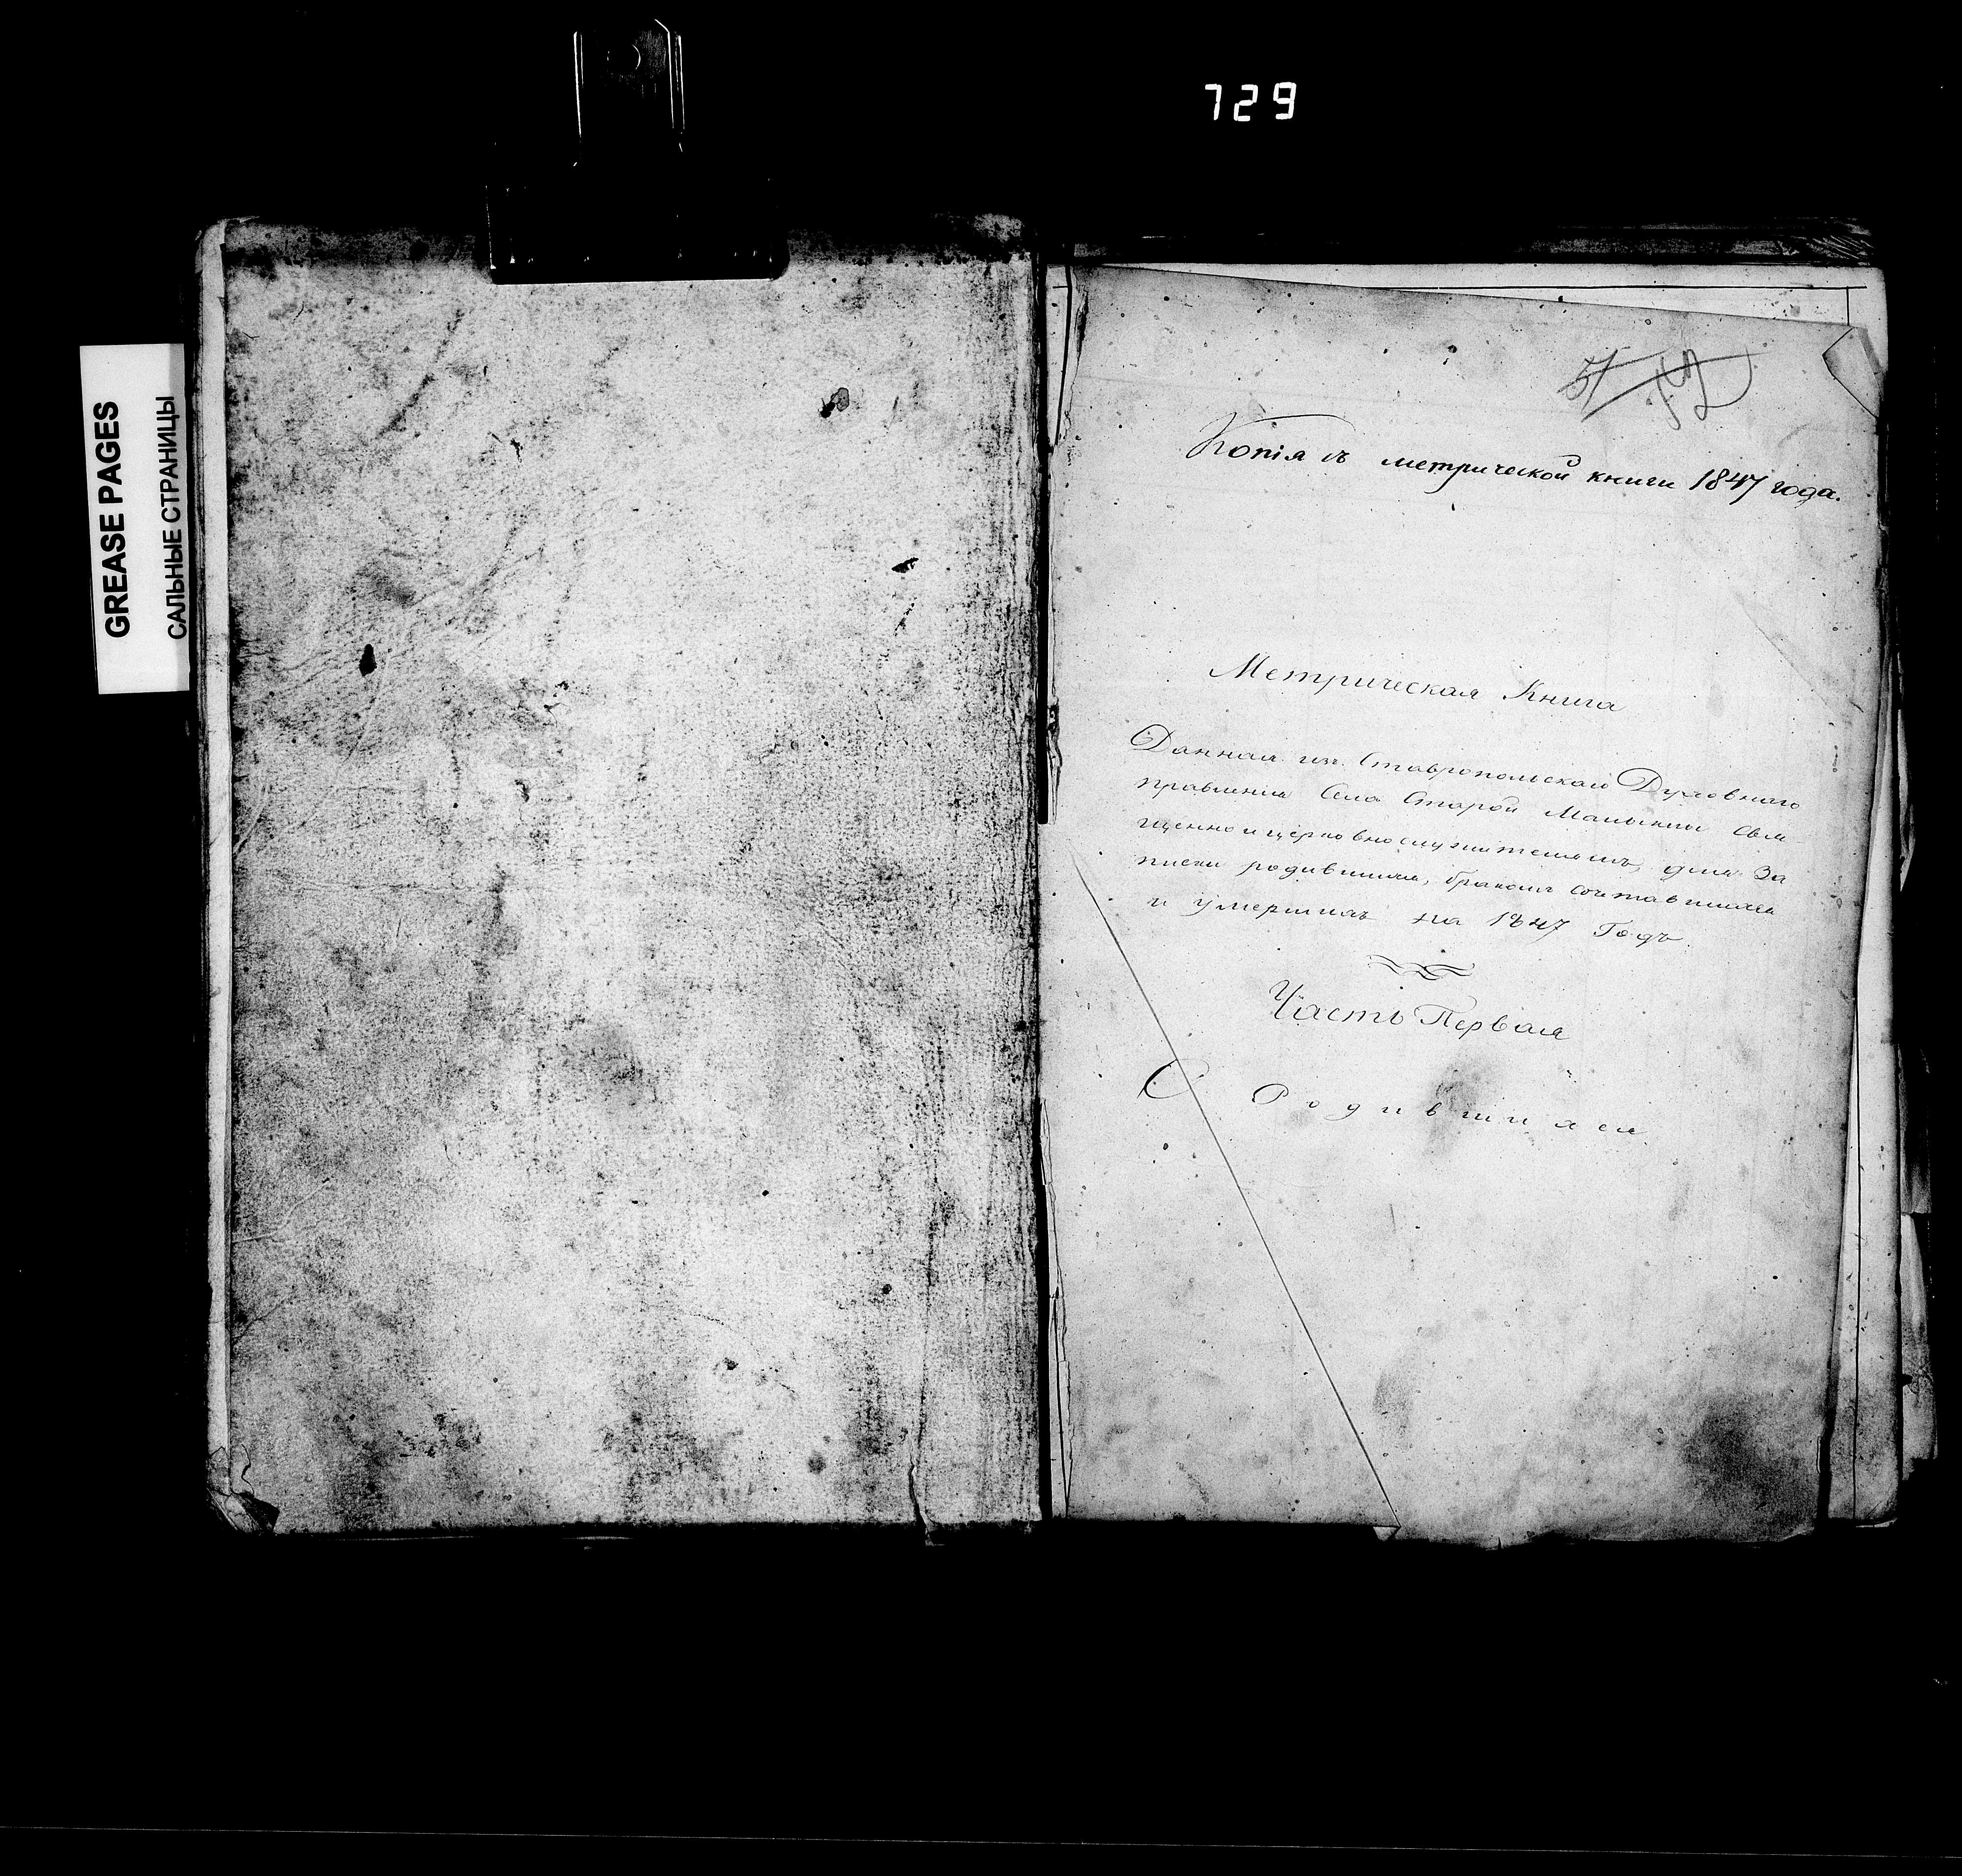 729
GREASE PAGES
САЛЬНЫЕ СТРАНИЦЫ
51 52
Копія съ метрической книги 1847 года.
Метрическая Книга
Данная изъ Ставропольскаго Духовнаго
правленія Села Старой Маинки Свя
щенно и церковнослужителямъ, для За
писки родившихся, бракомъ сочетавшихся
и умершихъ на 1847 Годъ.
Часть Первая
О Родившихся.